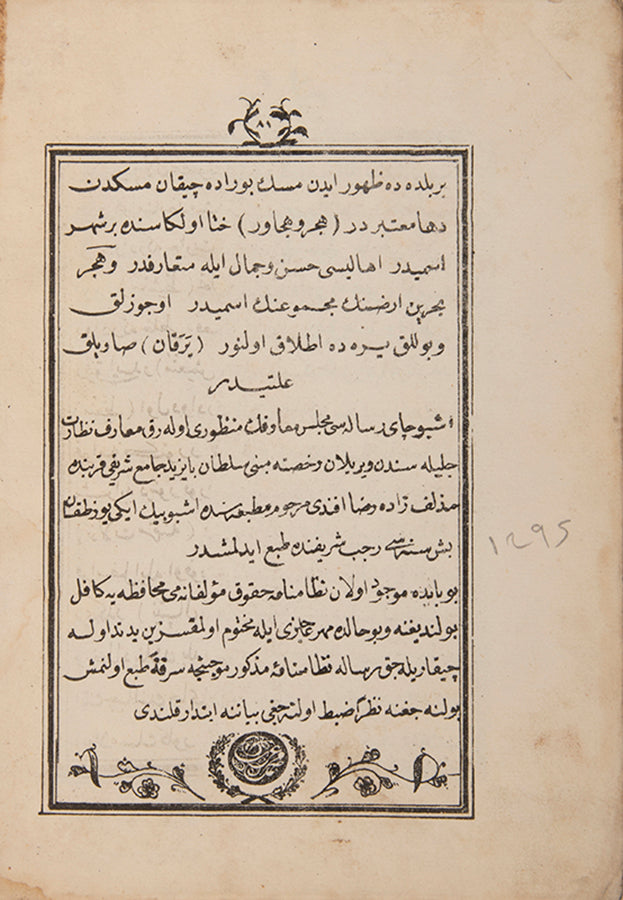 ٨١
بر بلده ده ظهور ایدن مسك بوراده چیقان مسكدن
دها معتبر در (هجر وهجاور) ختا اولكاسنده بر شهر
اسمیدر اهالیسی حسن وجمال ایله متعارفدر وهجر
بحرین ارضنك مجموعنك اسمیدر اوجوزلق
وبوللق یرده ده اطلاق اولنور (یرقان) صاریلق
علتیدر
اشبو چای رساله سی مجلس معارفك منظوری اوله رق معارف نظارت
جلیله سندن ویریلان رخصته مبنی سلطان بایزید جامع شریفی قربنده
رضا افندی مرحوم مطبعه سنده اشبو بیك ایكی یوز طقسان
بش سنه سی رجب شریفنده طبع ایدلمشدر
بو بابده موجود اولان نظامنامه حقوق مؤلفانه می محافظه یه كافل
بولندیغنه وبو حالده مهر عاجزی ایله مختوم اولمقسزین یدنداوله
چیقاریله جق رساله نظامنامهٔ مذكور موجبنجه سرقةً طبع اولنمش
بولنه جغنه نظرًا ضبط اولنه جغی بیاننه ابتدار قلندی
1295